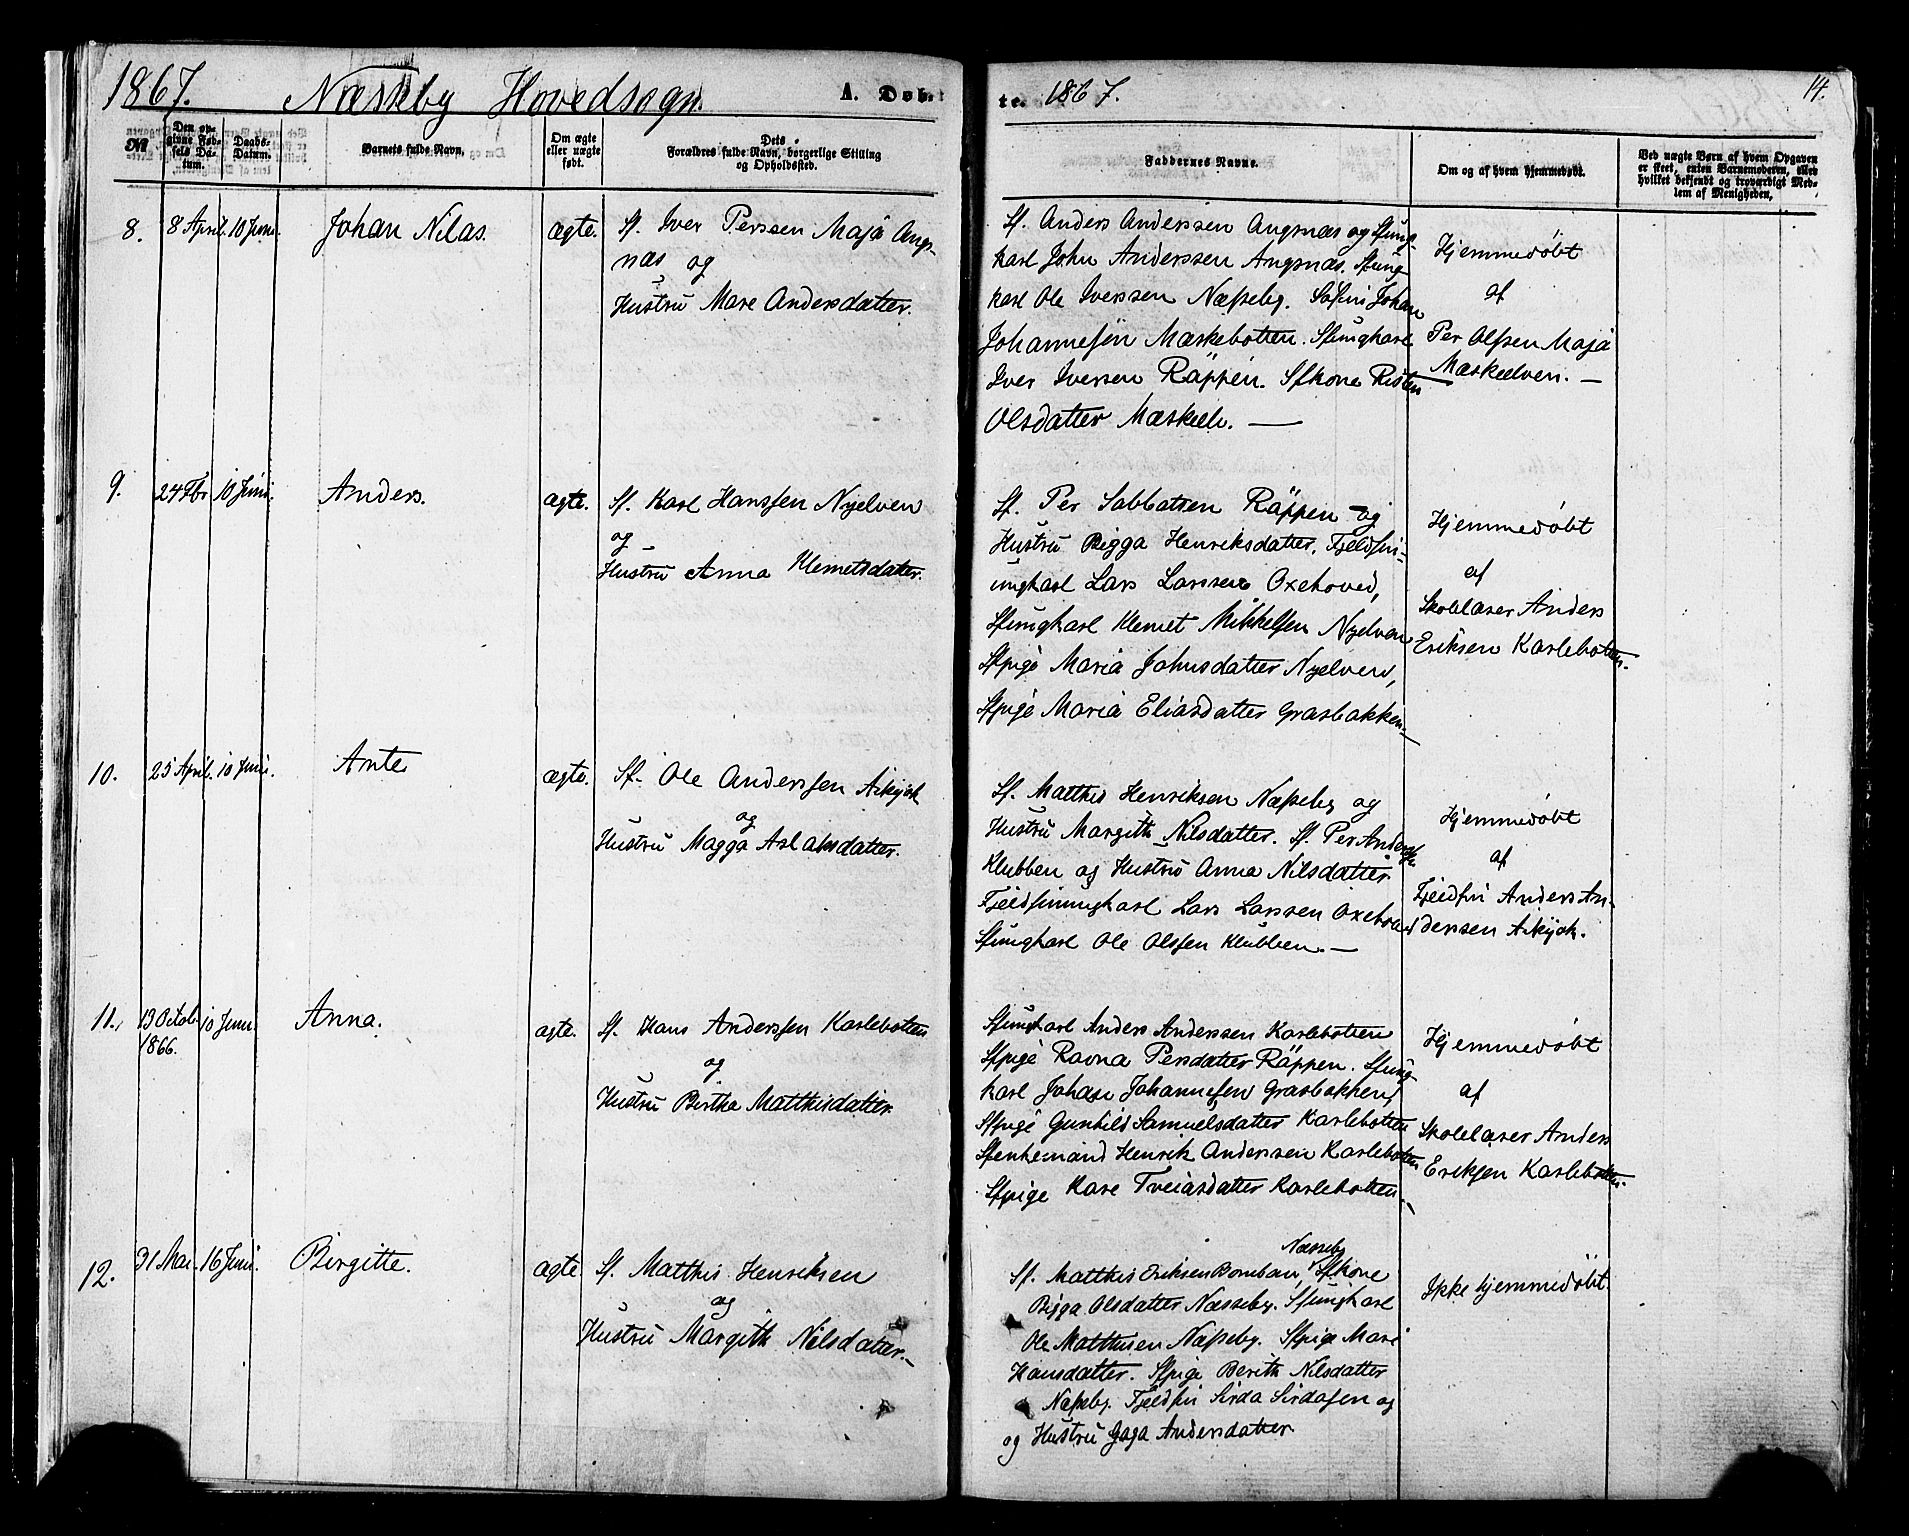 1867. Næsseby Hovedsogn. A. Døb-
te. 1867. 14.
№
Den op-
givne Fød-
sels Da-
tum.
Daabs-
Datum.
Barnets fulde Navn.
Om ægte
eller uægte
født.
Dets
Forældres fulde Navn, borgerlige Stilling
og Opholdssted.
Faddernes Navne.
Om og af hvem hjemmedøbt.
Ved uægte Børn af hvem Opgaven
er skeet, enten Barnemoderen, eller
hvilket bekjendt og troværdigt Med-
lem af Menigheden.
8. 8 April. 10 Juni. Johan Nilas. ægte.
Sf. Iver Perssen Maja Angs-
næs og
Hustru Mare Andersdatter.
Sf. Anders Anderssen Angsnæs og Sfung-
karl John Anderssen Angsnæs. Sfung
karl Ole Iverssen Næsseby. Søfin Johan
Johannesen Mæskebotten. Sfungkarl
Iver Iversen Räppen. Sfkone Risten
Olsdatter Mæskeelv. —
Hjemmedøbt
af
Per Olssen Maja
Mæskeelven. —
9. 24 Fbr 10 Juni. Anders. ægte.
Sf. Karl Hanssen Nyelven
og
Hustru Anna Klemetsdatter.
Sf. Per Sabbatsen Räppen og
Hustru Bigga Henriksdatter, Fjeldfin-
ungkarl Lars Larssen Oxehoved,
Sfungkarl Klemet Mikkelsen Nyelven
Sfpige Maria Johnsdatter Nyelven,
Sfpige Maria Eliasdatter Grasbakken—
Hjemmedøbt
af
Skolelærer Anders
Eriksen Karlebotten.
10. 25 April. 10 Juni. Ante ægte.
Sf. Ole Anderssen
og
Hustru Magga Aslaksdatter.
Sf. Matthis Henriksen Næsseby og
Hustru Margith Nilsdatter. Sf. Per Anderss.
Klubben og Hustru Anna Nilsdatter
Fjeldfinungkarl Lars Larssen Oxehoved
Sfungkarl Ole Olssen Klubben. —
Hjemmedøbt
af
Fjeldfin Anders An-
derssen
11. 13 Octob. 10 Juni. Anna. ægte.
1866.
Sf. Hans Anderssen Karlebotten
og
Hustru Birtha Matthisdatter.
Sfungkarl Anders Anderssen Karlebotten
Sfpige Ravna Persdatter Räppen. Sfung
karl Johan Johannesen Grasbakken,
Sfpige Gunhild Samuelsdatter Karlebotten
Sfenkemand Henrik Anderssen Karlebotten
Sfpige Kare Tveiasdatter Karlebotten.—
Hjemmedøbt
af
Skolelærer Anders
Eriksen Karlebotten.
12. 31 Mai. 16 Juni. Birgitte. ægte
Sf. Matthis Henriksen
og
Hustru Margith Nilsdatter.—
Næsseby
Sf. Matthis Eriksen Bomban, Sfkone
Bigga Olsdatter Næsseby. Sfungkarl
Ole Matthisen Næsseby. Sfpige Mari
Hansdatter. Sfpige Berith Nilsdatter
Næsseby. Fjeldfin Sirda Sirdasen og
og Hustru Gaga Andersdatter.
Ikke hjemmedøbt.